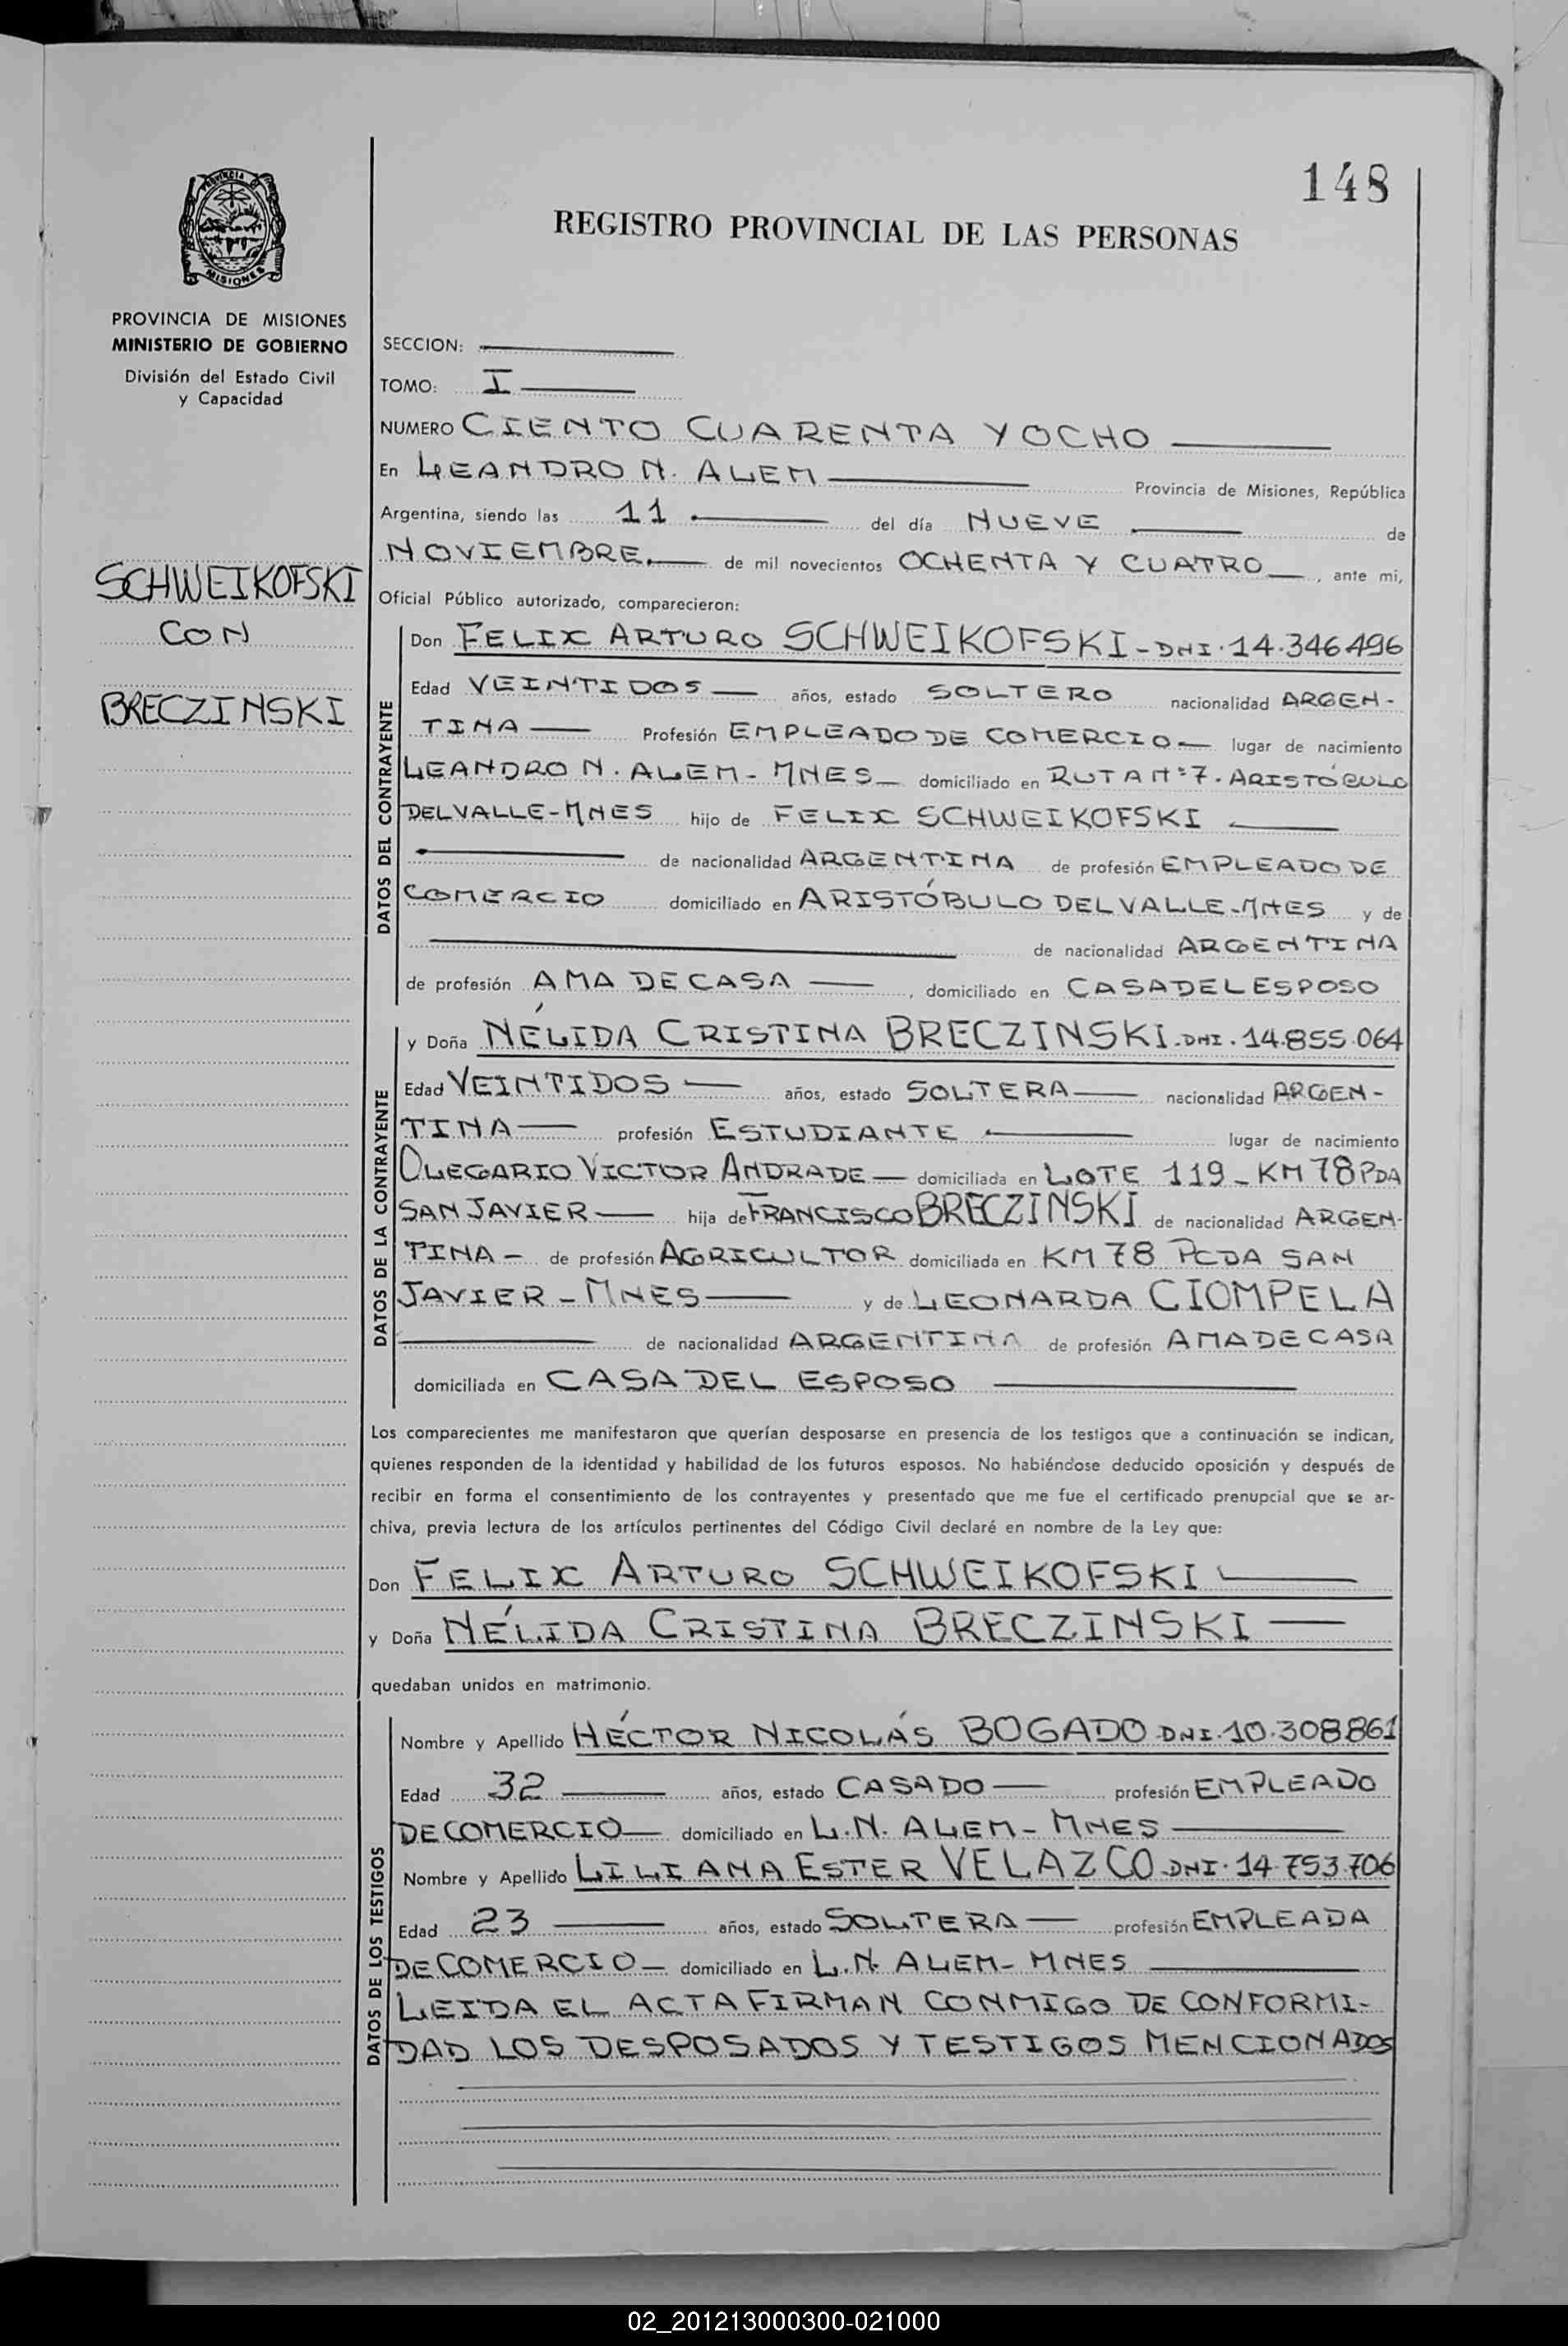 148
REGISTRO PROVINCIAL DE LAS PERSONAS
PROVINCIA DE
MISIONES
PROVINCIA DE MISIONES
MINISTERIO DE GOBIERNO
División del Estado Civil
y Capacidad
SCHWEIKOFSKI
CON
BRECZINSKI
SECCION:
TOMO: I
NUMERO CIENTO CUARENTA Y OCHO
En LEANDRO N. ALEM Provincia de Misiones, República
Argentina, siendo las 11 del día NUEVE de
NOVIEMBRE. de mil novecientos OCHENTA Y CUATRO, ante mi,
Oficial Público autorizado, comparecieron:
DATOS DEL CONTRAYENTE
Don FELIX ARTURO SCHWEIKOFSKI - DNI. 14.346.496
Edad VEINTIDOS años, estado SOLTERO nacionalidad ARGEN-
TINA Profesión EMPLEADO DE COMERCIO lugar de nacimiento
LEANDRO N. ALEM - MNES domiciliado en RUTA Nº 7. ARISTÓBULO
DEL VALLE - MNES hijo de FELIX SCHWEIKOFSKI
de nacionalidad ARGENTINA de profesión EMPLEADO DE
COMERCIO domiciliado en ARISTÓBULO DEL VALLE - MNES y de
de nacionalidad ARGENTINA
de profesión AMA DE CASA, domiciliado en CASA DEL ESPOSO
DATOS DE LA CONTRAYENTE
y Doña NÉLIDA CRISTINA BRECZINSKI. DNI. 14.855.064
Edad VEINTIDOS años, estado SOLTERA nacionalidad ARGEN-
TINA profesión ESTUDIANTE lugar de nacimiento
OLEGARIO VICTOR ANDRADE domiciliada en LOTE 119 - KM 78 PDA
SAN JAVIER hija de FRANCISCO BRECZINSKI de nacionalidad ARGEN-
TINA - de profesión AGRICULTOR domiciliada en KM 78 PCDA SAN
JAVIER - MNES y de LEONARDA CIOMPELA
de nacionalidad ARGENTINA de profesión AMA DE CASA
domiciliada en CASA DEL ESPOSO
Los comparecientes me manifestaron que querían desposarse en presencia de los testigos que a continuación se indican,
quienes responden de la identidad y habilidad de los futuros esposos. No habiéndose deducido oposición y después de
recibir en forma el consentimiento de los contrayentes y presentado que me fue el certificado prenupcial que se ar-
chiva, previa lectura de los artículos pertinentes del Código Civil declaré en nombre de la Ley que:
Don FELIX ARTURO SCHWEIKOFSKI
y Doña NÉLIDA CRISTINA BRECZINSKI
quedaban unidos en matrimonio.
DATOS DE LOS TESTIGOS
Nombre y Apellido HÉCTOR NICOLÁS BOGADO DNI. 10.308.861
Edad 32 años, estado CASADO profesión EMPLEADO
DE COMERCIO domiciliado en L.N. ALEM - MNES
Nombre y Apellido LILIANA ESTER VELAZCO DNI. 14.753.706
Edad 23 años, estado SOLTERA profesión EMPLEADA
DE COMERCIO domiciliado en L.N. ALEM - MNES
LEIDA EL ACTA FIRMAN CONMIGO DE CONFORMI-
DAD LOS DESPOSADOS Y TESTIGOS MENCIONADOS
02_201213000300-021000